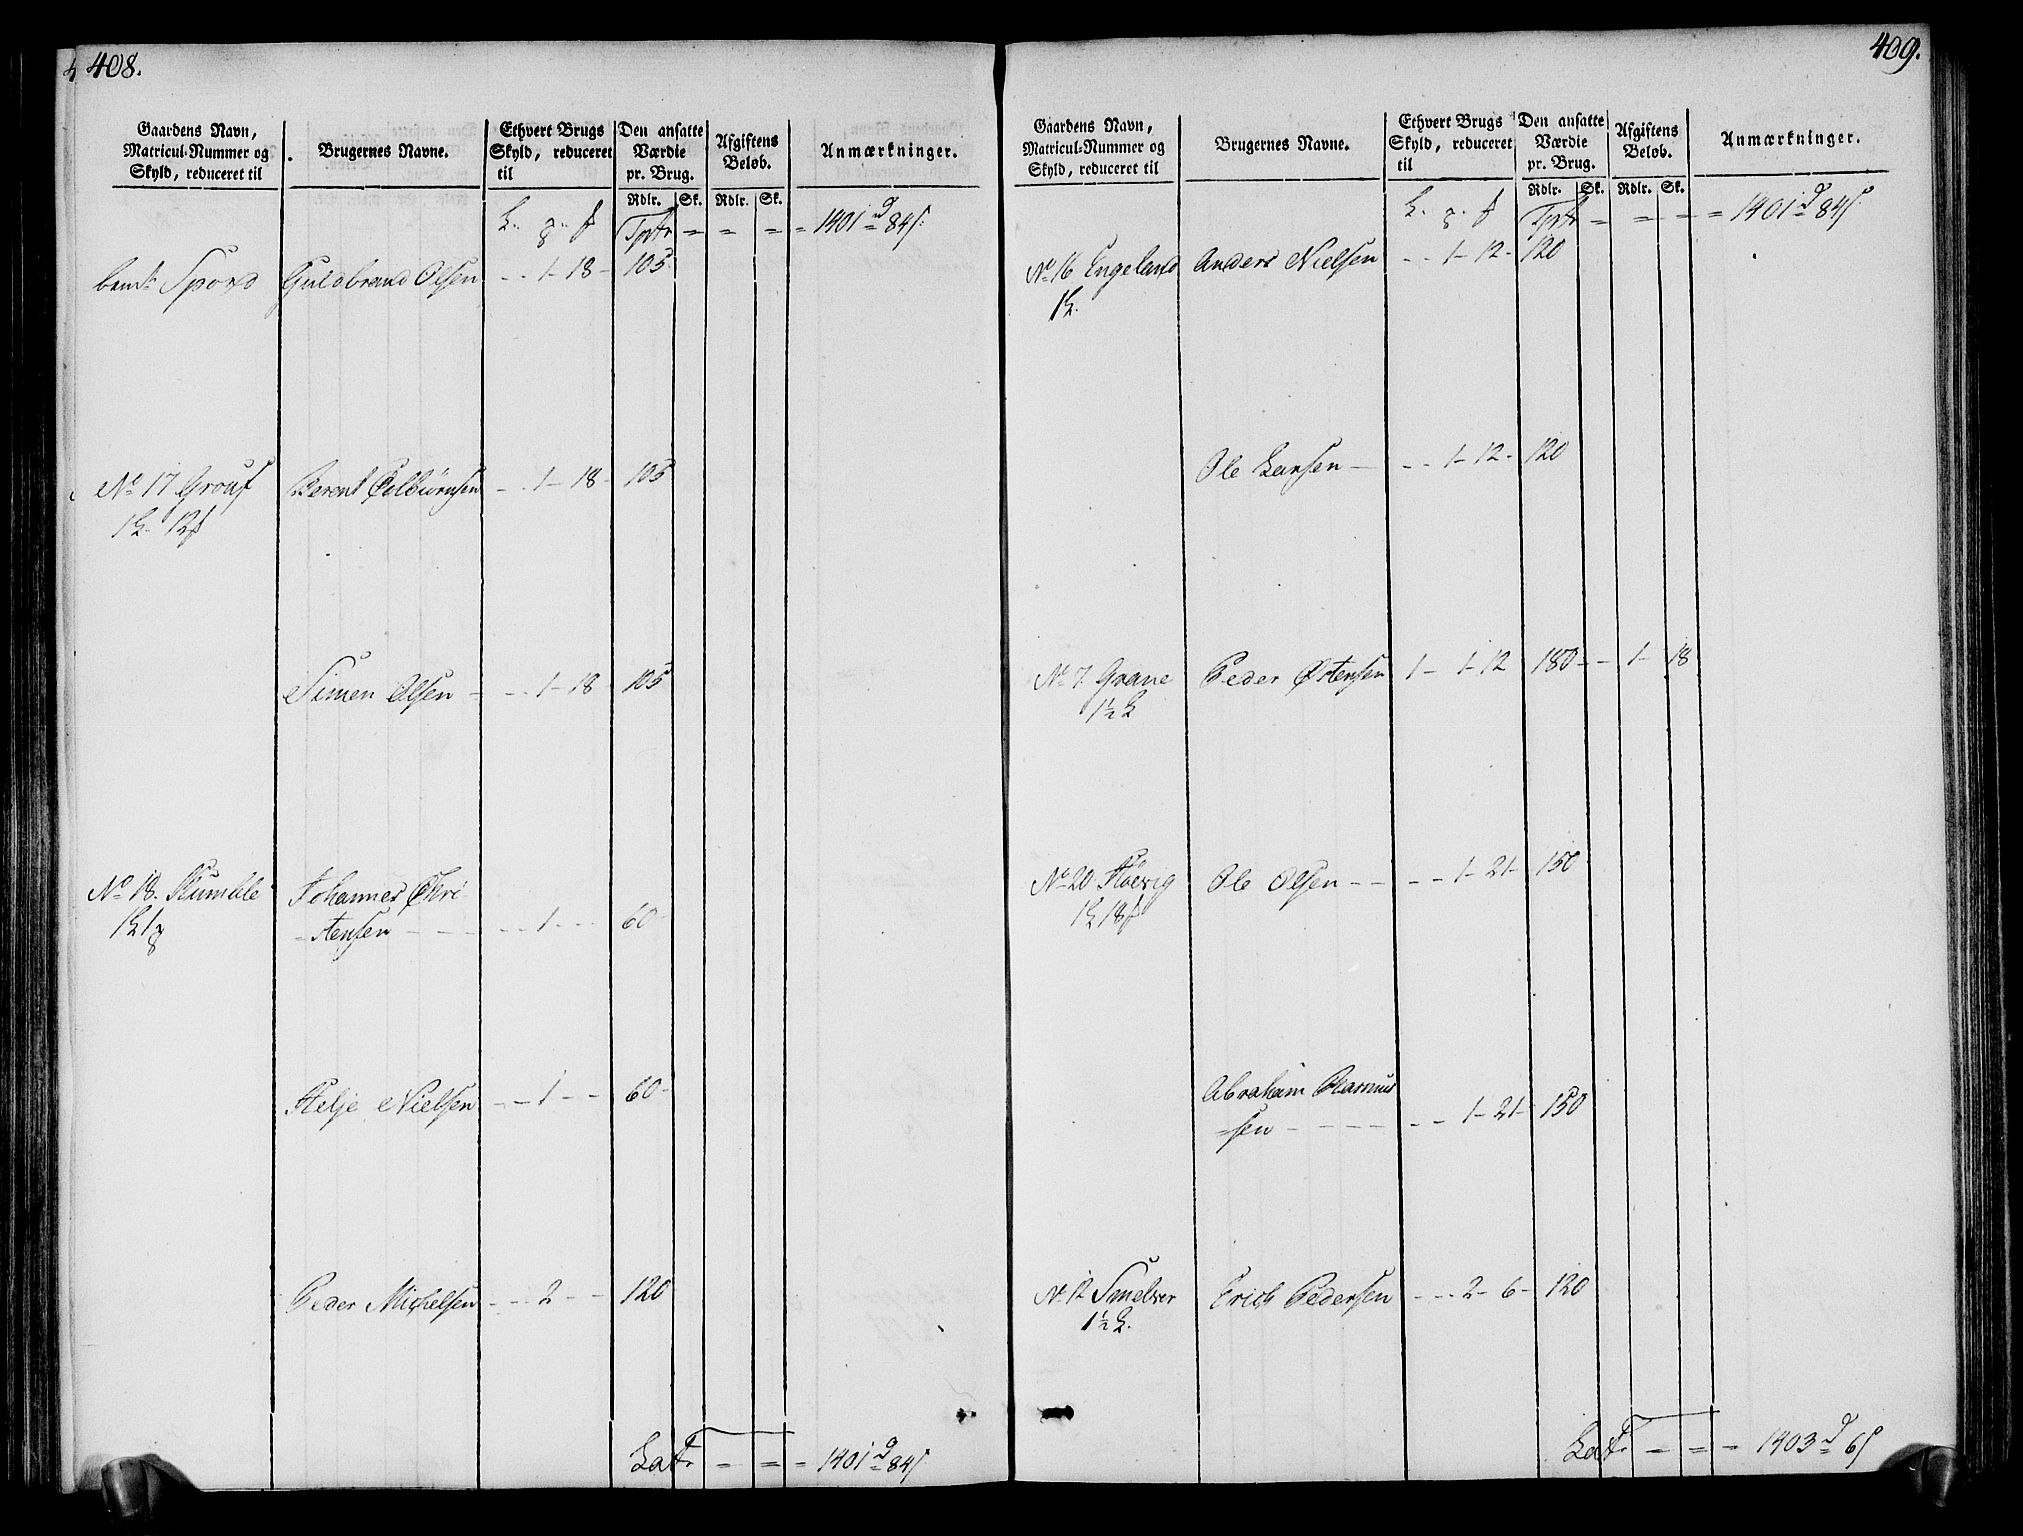 408.
Gaardens Navn,
Matricul-Nummer og
Skyld, reduceret til
Brugernes Navne.
Ethvert Brugs
Skyld, reduceret
til
Den ansatte
Værdie
pr. Brug.
Afgiftens
Beløb.
Anmærkninger.
Rdlr. Sk. Rdlr. Sk.
Tprtr 1401 d 84 s
bemte Spord Guldbrand Olsen - - 1 - 18 - 105
No 17 Grouf Berent Colbiørnsen - - 1 - 18 - 105
1 L. 12 f
Simen Olsen - - - 1 - 18 - 105
No 18. Rumble Johannes Chri-
1 L 1 - stensen - - - 1 - - 60 -
Helje Nielsen - - 1 - - 60 -
Peder Michelsen - - - 2 - - 120
Lat. - - - 1401 d 84 s
409.
Gaardens Navn,
Matricul-Nummer og
Skyld, reduceret til
Brugernes Navne.
Ethvert Brugs
Skyld, reduceret
til
Den ansatte
Værdie
pr. Brug.
Afgiftens
Beløb.
Anmærkninger.
Rdlr. Sk. Rdlr. Sk.
Tprtr 1401 d 84 s
No 16 Engeland Anders Nielsen - - 1 - 12 - 120
1 L.
Ole Larsen - - - 1 - 12 - 120
No 7. Grane Peder Østensen 1 - 1 - 12 180 - - 1 - 18
1 1/2 L
No 20. Høevig Ole Olsen - - - - 1 - 21 - 150
1 L 18 f
Abraham Rasmus
=sen - - - - - 1 - 21 - 150
No 12 Smelver Erich Pedersen - - - 2 - 6 - 120
1 1/2 L.
Lat. - - - 1403 d 6 s